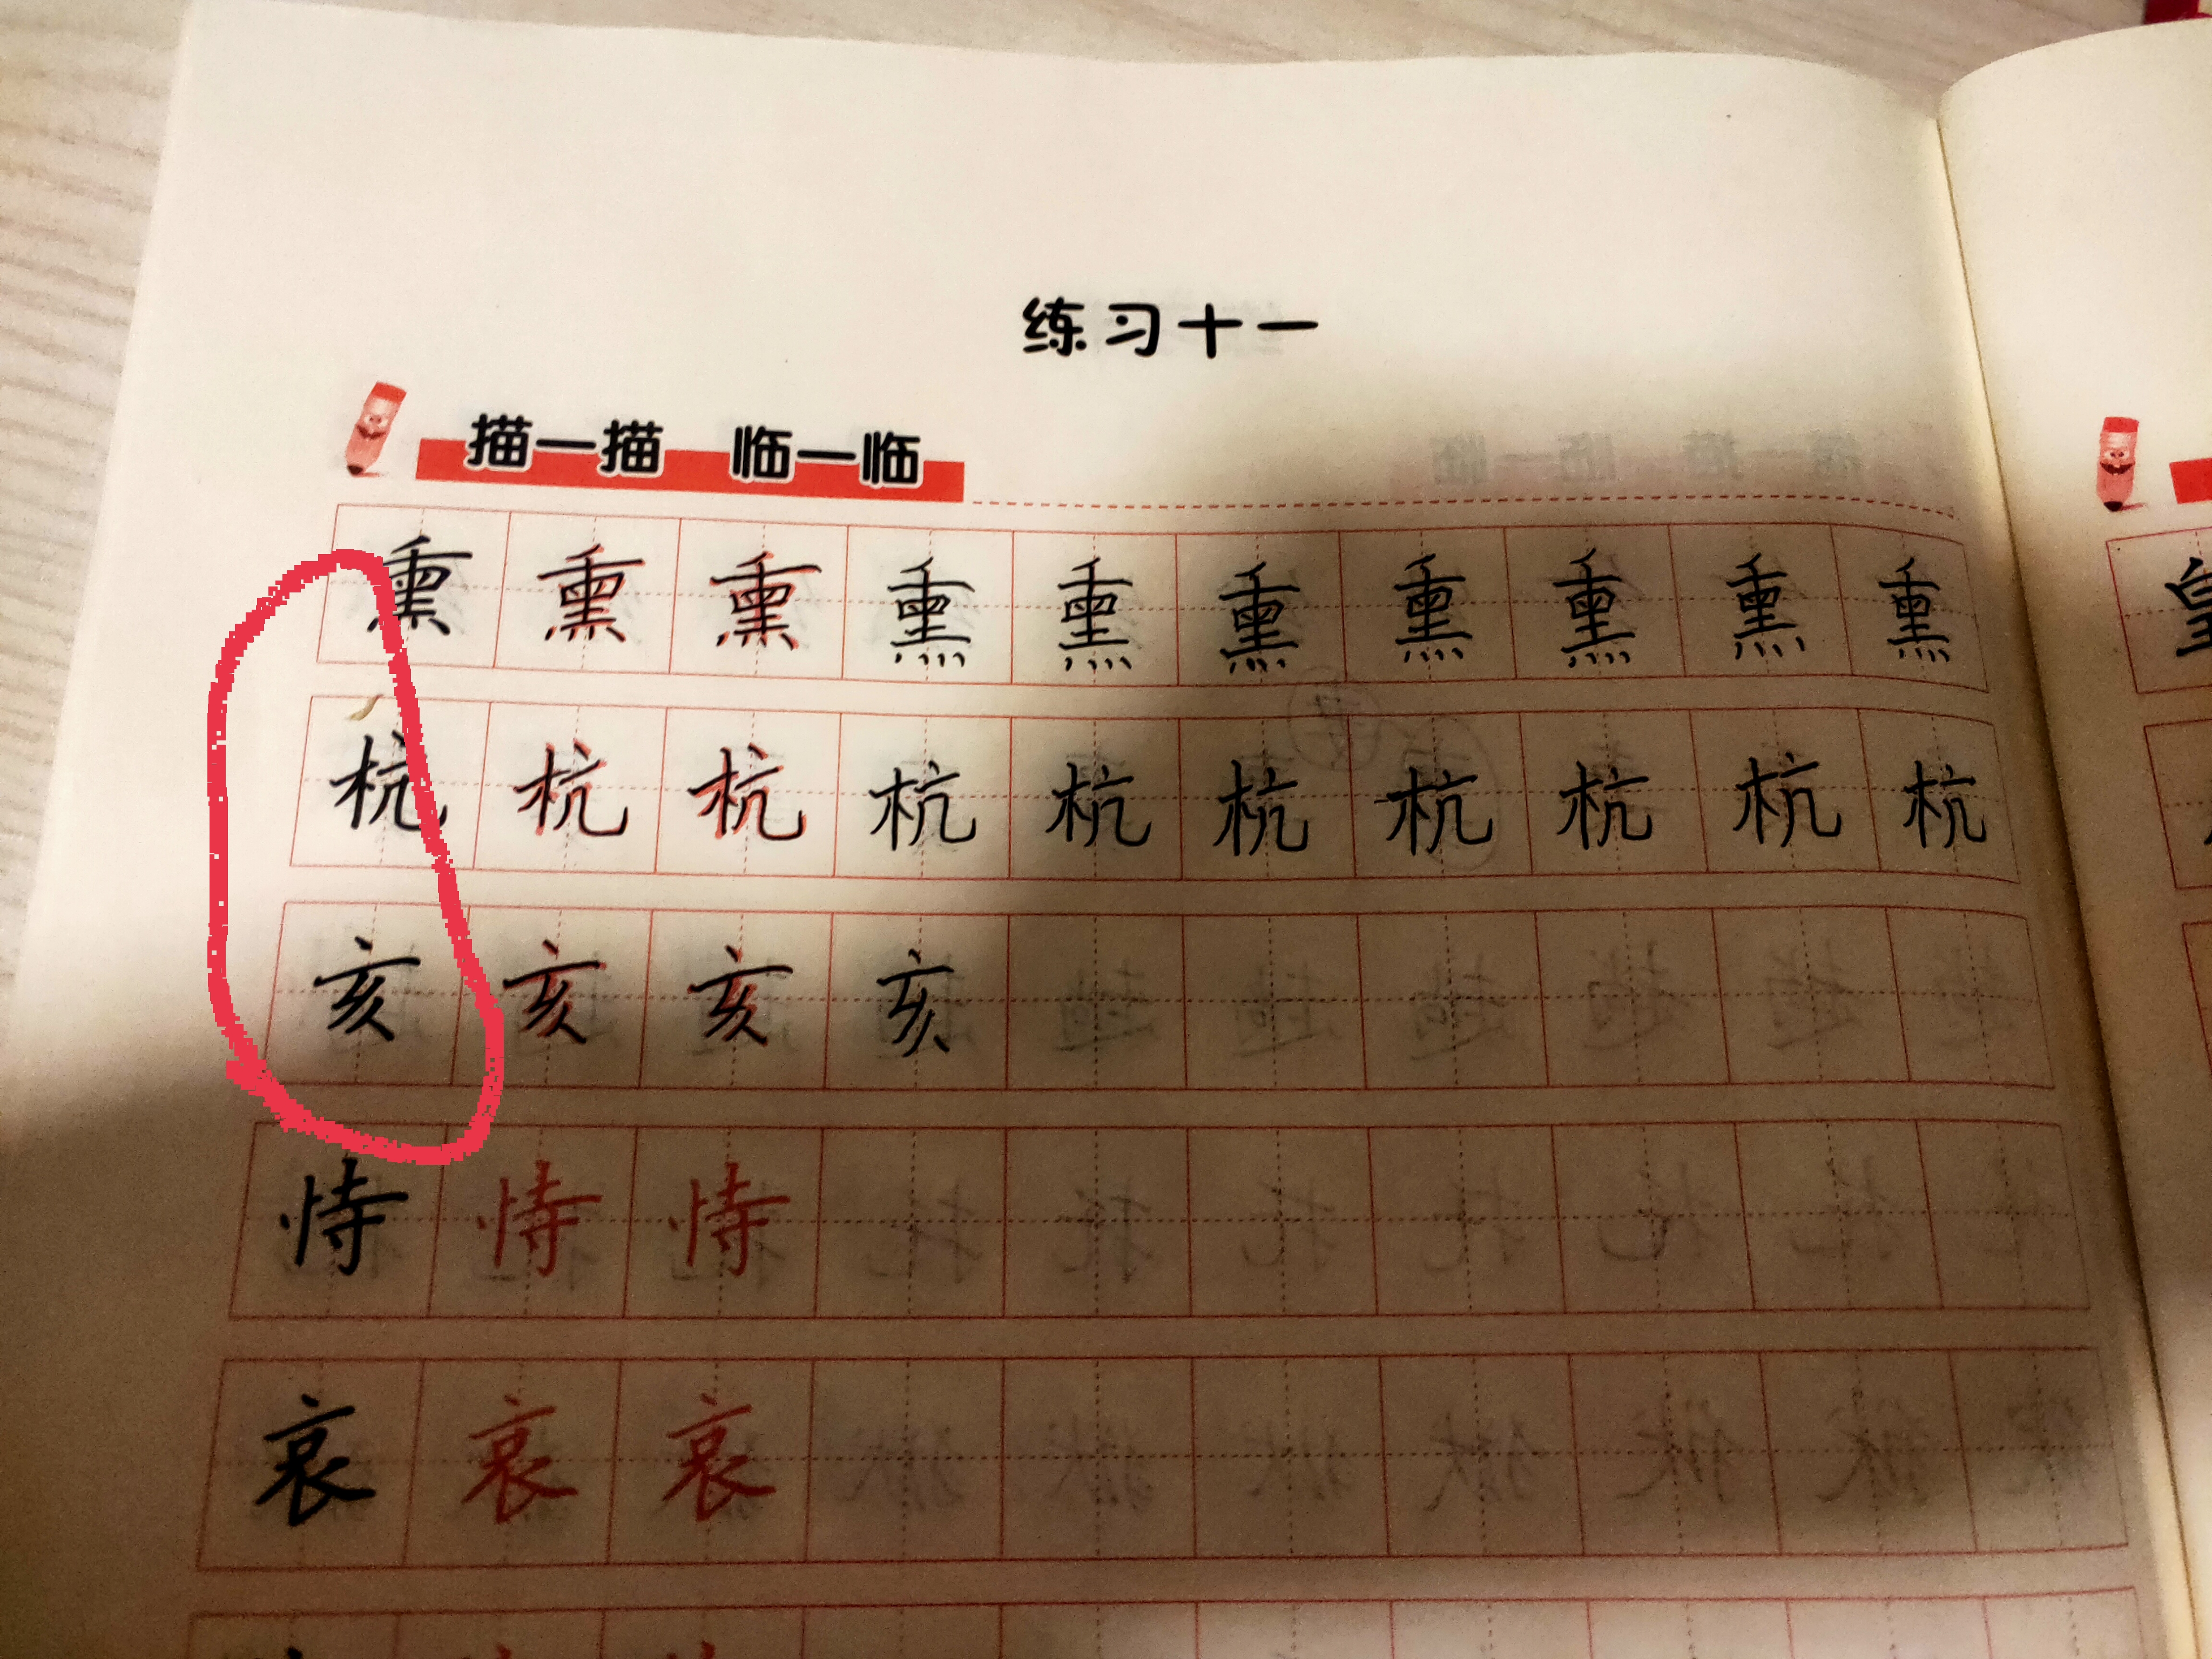 练习十一
描一描 临一临
熏 熏 熏 熏 熏 熏 熏 熏 熏 熏
杭 杭 杭 杭 杭 杭 杭 杭 杭 杭
亥 亥 亥 亥
恃 恃 恃
哀 哀 哀